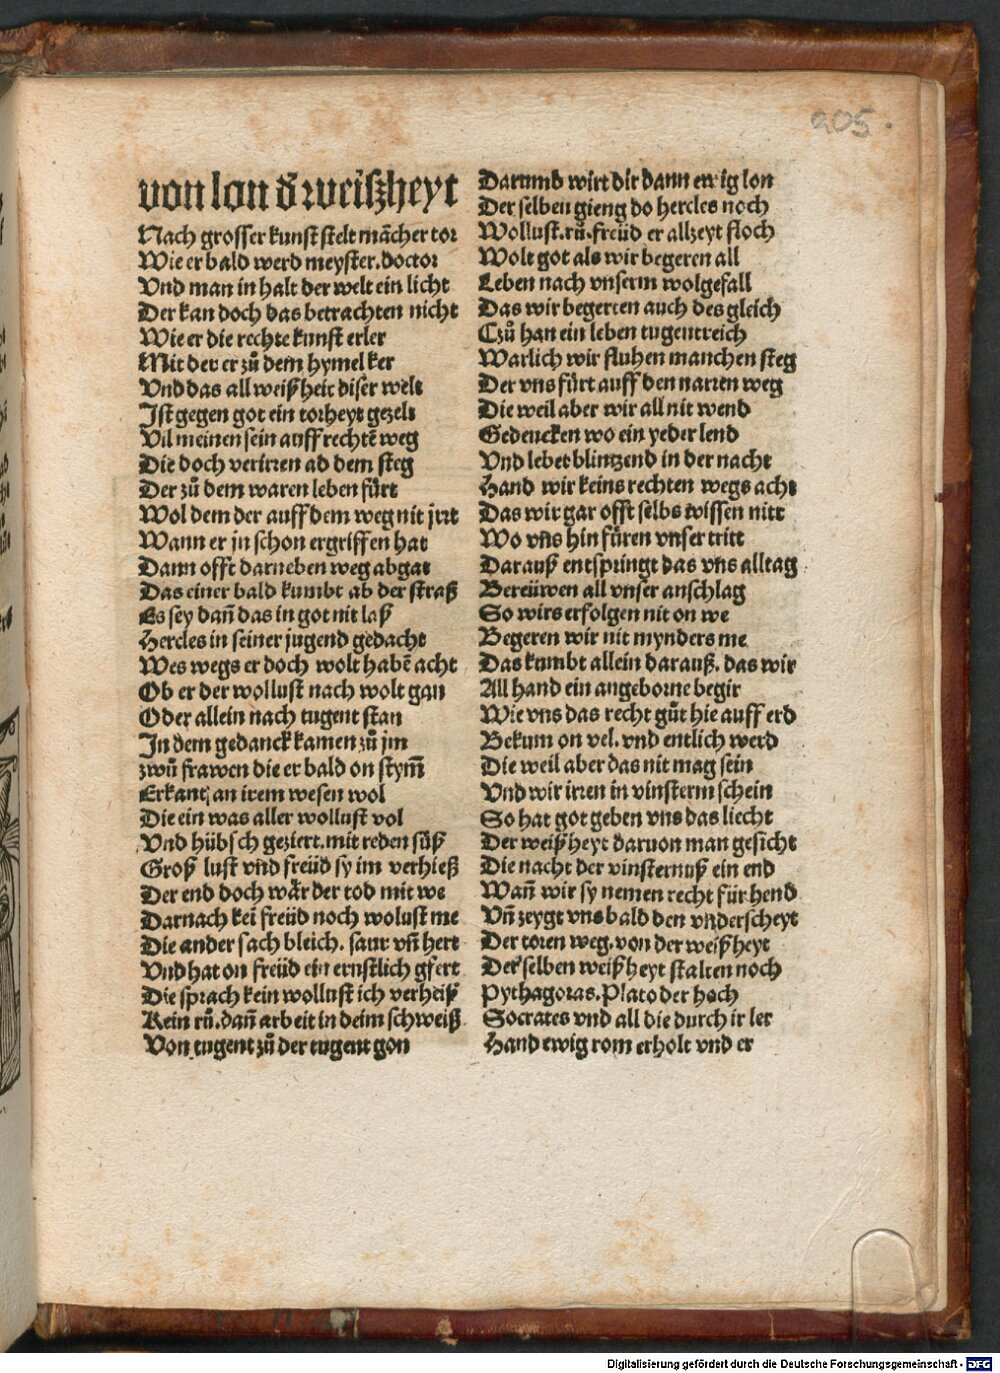 205.
von lon d̃ weiſzheyt
Nach groſſer kunſt ſtelt mãcher tor
Wie er bald werd meyſter. doctor
Vnd man in halt der welt ein licht
Der kan doch das betrachten nicht
Wie er die rechte kunſt erler
Mit der er zů dem hymel ker
Vnd das all weißheit diſer welt
Jſt gegen got ein torheyt gezelt
Vil meinen ſein auff rechtẽ weg
Die doch verirren ab dem ſteg
Der zů dem waren leben fürt
Wol dem der auff dem weg nit jrrt
Wann er jn ſchon ergriffen hat
Dann offt darneben weg abgat
Das einer bald kumbt ab der ſtraß
Es ſey dañ das in got nit laß
Hercles in ſeiner jugend gedacht
Wes wegs er doch wolt habẽ acht
Ob er der wolluſt nach wolt gan
Oder allein nach tugent ſtan
In dem gedanck kamen zů jm
zwů frawen die er bald on ſtym̃
Erkant, an irem weſen wol
Die ein was aller wolluſt vol
Vnd hübſch geziert. mit reden ſůß
Groß luſt vnd freüd ſy im verhieß
Der end doch wår der tod mit we
Darnach kei freüd noch woluſt me
Die ander ſach bleich. ſaur vñ hert
Vnd hat on freüd ein ernſtlich gfert
Die ſprach kein wolluſt ich verheiß
Kein rů. dañ arbeit in deim ſchweiß
Von tugent zů der tugent gon
Darumb wirt dir dann ewig lon
Der ſelben gieng do hercles noch
Wolluſt. rů. freüd er allzeyt floch
Wolt got als wir begeren all
Leben nach vnſerm wolgefall
Das wir begerten auch des gleich
Czů han ein leben tugentreich
Warlich wir fluhen manchen ſteg
Der vns fürt auff den narren weg
Die weil aber wir all nit wend
Gedencken wo ein yeder lend
Vnd lebet blintzend in der nacht
Hand wir keins rechten wegs acht
Das wir gar offt ſelbs wiſſen nitt
Wo vñs hin füren vnſer tritt
Darauß entſpringt das vñs alltag
Bereüwen all vnſer anſchlag
So wirs erfolgen nit on we
Begeren wir nit mynders me
Das kumbt allein darauß. das wir
All hand ein angeborne begir
Wie vns das recht gůt hie auff erd
Bekum on vel. vnd entlich werd
Die weil aber das nit mag ſein
Vnd wir irren in vinſterm ſchein
So hat got geben vns das liecht
Der weißheyt daruon man geſicht
Die nacht der vinſternuß ein end
Wañ wir ſy nemen recht für hend
Vñ zeygt vns bald den vnderſcheyt
Der toren weg. von der weißheyt
Der ſelben weißheyt ſtalten noch
Pythagoras. Plato der hoch
Socrates vnd all die durch ir ler
Hand ewig rom erholt vnd er
Digitalisierung gefördert durch die Deutsche Forschungsgemeinschaft - DFG